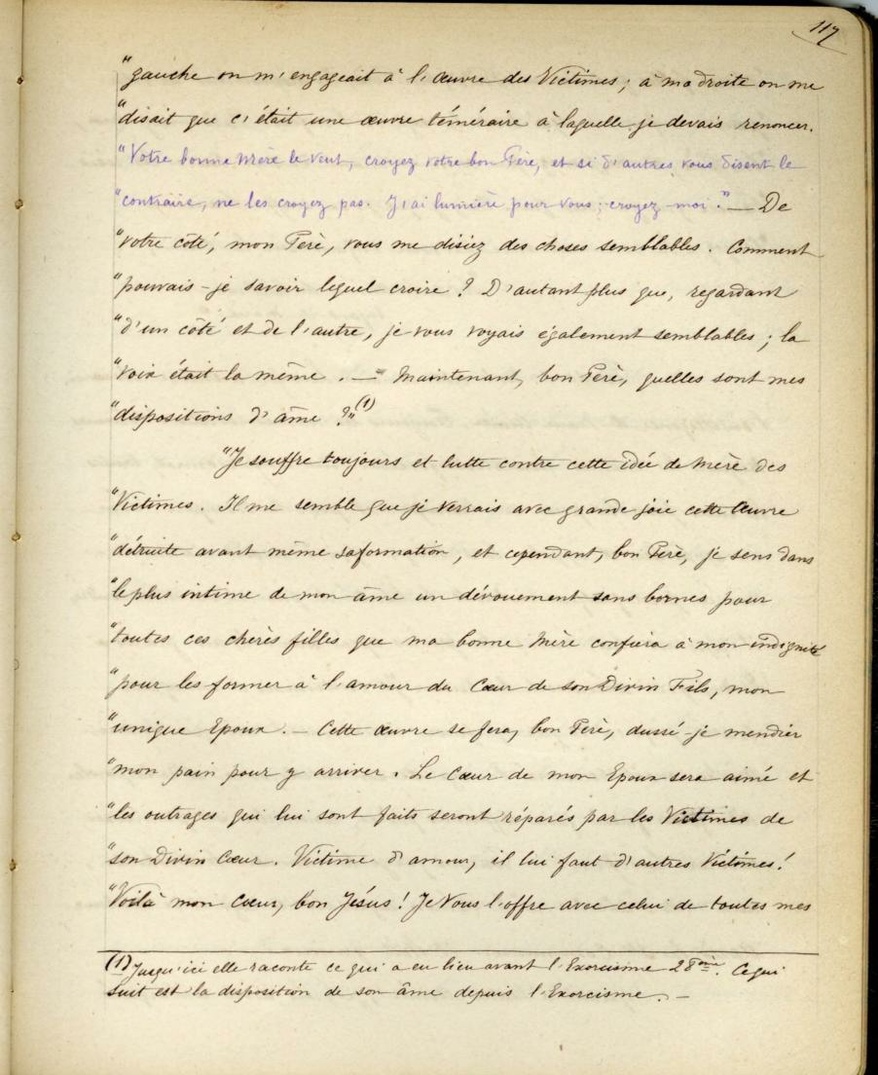 117
"gauche on m'engageait à l'œuvre des Victimes ; à ma droite on me
"disait que c'était une œuvre téméraire à laquelle je devais renoncer.
"Votre bonne Mère le veut, croyez votre bon Père, et si d'autres vous disent le
"contraire, ne les croyez pas. J'ai lumière pour vous ; croyez-moi." — De
"votre côté, mon Père, vous me disiez des choses semblables. Comment
"pouvais-je savoir lequel croire ? D'autant plus que, regardant
"d'un côté et de l'autre, je vous voyais également semblables ; la
"voix était la même. — " Maintenant, bon Père, quelles sont mes
"dispositions d'âme ?" (1)
"Je souffre toujours et lutte contre cette idée de Mère des
"Victimes. Il me semble que je verrais avec grande joie cette Œuvre
"détruite avant même sa formation, et cependant, bon Père, je sens dans
"le plus intime de mon âme un dévouement sans bornes pour
"toutes ces chères filles que ma bonne Mère confiera à mon indignité
"pour les former à l'amour du Cœur de son Divin Fils, mon
"unique Epoux. — Cette œuvre se fera, bon Père, dussé-je mendier
"mon pain pour y arriver. Le Cœur de mon Epoux sera aimé et
"les outrages qui lui sont faits seront réparés par les Victimes de
"son Divin Cœur. Victime d'amour, il lui faut d'autres Victimes !
"Voilà mon cœur, bon Jésus ! Je Vous l'offre avec celui de toutes mes
(1) Jusqu'ici elle raconte ce qui a eu lieu avant l'Exorcisme 28ème. Ce qui
suit est la disposition de son âme depuis l'Exorcisme. —